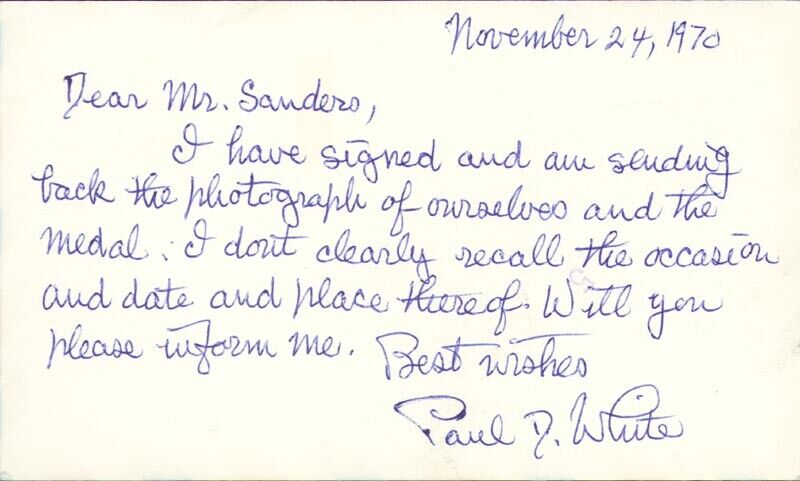 November 24, 1970
Dear Mr. Sanders,
I have signed and am sending
back the photograph of ourselves and the
medal. I dont clearly recall the occasion
and date and place thereof. Will you
please inform me. Best wishes
Paul D. White